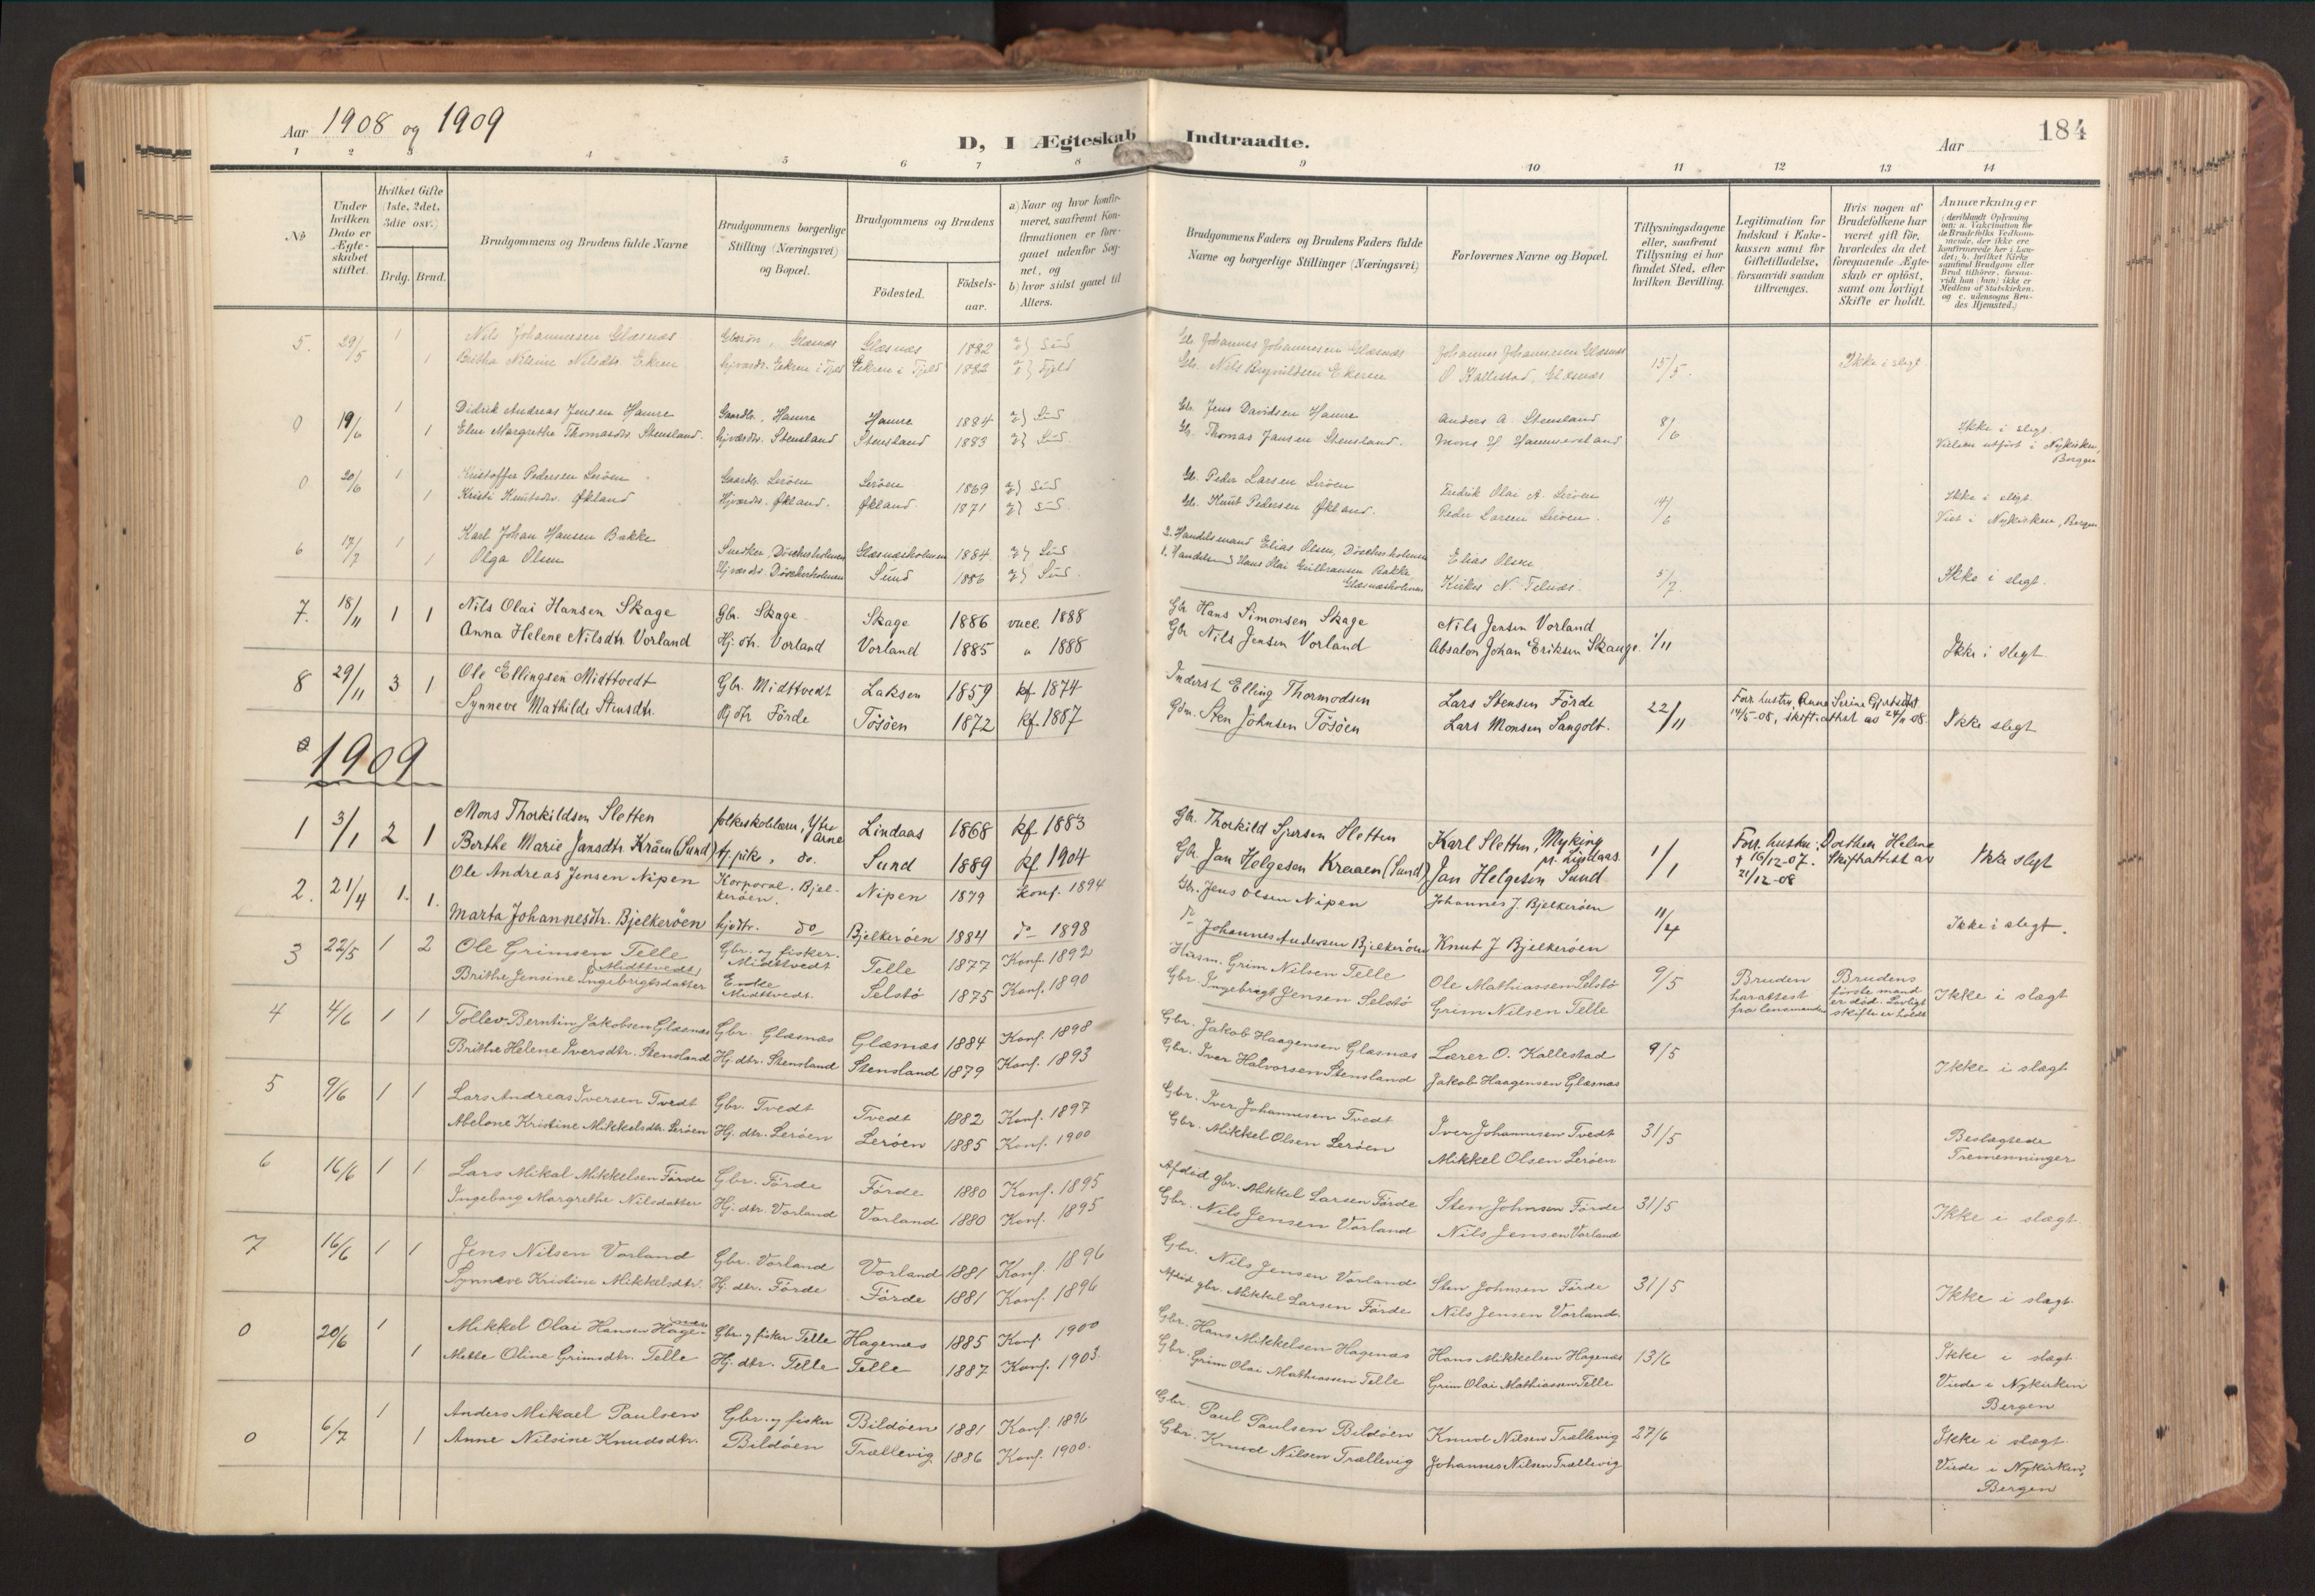 Aar 1908 og 1909
D, I Ægteskab Indtraadte.
Aar
184
1 2 3 4 5 6 7 8 9 10 11 12 13 14
No
Under hvilken Dato er Ægteskabet stiftet.
Hvilket Gifte (1ste, 2det, 3die osv.)
Brdg. Brud.
Brudgommens og Brudens fulde Navne
Brudgommens borgerlige Stilling (Næringsvei) og Bopæl.
Brudgommens og Brudens
Födested.
Födsels-aar.
a) Naar og hvor konfirmeret, saafremt Konfirmationen er foregaaet udenfor Sognet, og
b) hvor sidst gaaet til Alters.
Brudgommens Faders og Brudens Faders fulde Navne og borgerlige Stillinger (Næringsvei)
Forlovernes Navne og Bopæl.
Tillysningsdagene eller, saafremt Tillysning ei har fundet Sted, efter hvilken Bevilling.
Legitimation for Indskud i Enkekassen samt for Giftetilladelse, forsaavidt saadan tiltrænges.
Hvis nogen af Brudefolkene har været gift för, hvorledes da det foregaaende Ægteskab er oplöst, samt om lovligt Skifte er holdt.
Anmærkninger
5. 29/5 1 Nils Johannesen Glæsnæs Glæsnæs Glæsnæs 1882 Sund Gbr. Johannes Johannesen Glæsnæs Johannes Johannesen Glæsnæs 15/5. Ikke i slegt
1 Britha Nilsdtr. Ekren Ekren i Fjeld Ekren i Fjeld 1882 Fjeld Gbr. Nils Ekren O Kallestad, Glæsnæs
0 19/6 1 Didrik Andreas Jensen Hamre Gaardbr. Hamre Hamre 1884 Sund Gbr. Jens Davidsen Hamre Anders A. Stensland 8/6 Ikke i slegt.
1 Elen Margrethe Thomasdtr. Stensland. Stensland Stensland 1883 Sund Gbr. Thomas Jansen Stensland. Mons Hammersland Vielsen utført i Nykirken, Bergen
0 20/6 1 Kristoffer Pedersen Leröen Gaardbr. Leröen Leröen 1869 Sund Gbr. Peder Larsen Leröen Fredrik Olai A. Leröen Ikke i slegt.
1 Kristi Knutsdtr. Økland Økland. Økland. 1871 Sund Gbr. Knut Pedersen Økland. Peder Larsen Leröen. Viet i Nykirken, Bergen
6 17/7 1 Karl Johan Hansen Bakke Snedker, Döscherholmen Glæsnæsholmen 1884. Sund 2. Handelsmand Elias Olsen, Döscherholmen Elias Olsen 5/7. Ikke i slegt.
1 Olga Olsen Döscherholmen Sund 1886 Sund. 1. Hans Olai Gulbransen Bakke Glæsnæsholmen N. Telnæs
7. 18/11 1 1 Nils Olai Hansen Skage Gbr. Skage Skage 1886 vacc. 1888 Gbr Hans Simonsen Skage Nils Jensen Vorland 1/11
Anna Helene Nilsdtr. Vorland Hj. dtr. Vorland Vorland 1885 " 1888 Gbr Nils Jensen Vorland Absalon Johan Eriksen Skauge. Ikke i slegt
8 29/11 3 1 Ole Ellingsen Midttvedt Gbr. Midttvedt Laksen 1859 kf. 1874 Inderst Elling Thormodsen Lars Stensen Förde 22/11 Forr. hustru Anne Serine
Synneve Mathilde Stensdtr. Hj dtr Förde Tösöen 1872 kf. 1887 Gdm. Sten Johnsen Tösöen Lars Monsen Sangolt. 14/5-08, skift.attest av 24/11 08 Ikke slegt
1909
1 3/1 2 1 Mons Thorkildsen Sletten folkeskolelærer, Ytre Arne Lindaas 1868 kf. 1883 Gbr. Thorkild Sjursen Sletten Karl Sletten, Myking pr. Lindaas. 1/1 Forr. hustru: Dorthea Helene
Berthe Marie Jansdtr. Kråen (Sund) tj. pike, do. Sund 1889 kf. 1904 Gbr. Jan Helgesen Kraaen (Sund) Jan Helgesen Sund † 16/12-07. Skifteattest av 21/12-08 Ikke slegt
2. 21/4 1. 1. Ole Andreas Jensen Nipen Korporal. Bjelkeröen. Nipen 1879 konf. 1894 Gbr. Jens Olsen Nipen Johannes J. Bjelkeröen 11/4 Ikke i slegt.
Marta Johannesdtr. Bjelkeröen hjdtr. do Bjelkeröen 1884 do 1898 do Johannes Andersen Bjelkeröen Knut J Bjelkeröen
3 22/5 1 2 Ole Grimsen Telle Gbr. og fisker. Midttvedt Telle 1877 Konf. 1892 Husm. Grim Nilsen Telle Ole Mathiassen Selstö 9/5 Bruden har attest fra lensmanden Brudens förste mand er död. Lovligt skifte er holdt Ikke i slægt
Brithe Jensine Ingebrigtsdatter (Midttvedt) Enke Midttvedt. Selstö 1875 Konf. 1890 Gbr Ingebrigt Jensen Selstö Grim Nilsen Telle
4 4/6 1 1 Tollev Berntin Jakobsen Glæsnæs Gbr. Glæsnæs Glæsnæs 1884 Konf. 1898 Gbr. Jakob Haagensen Glæsnæs Lærer O. Kallestad 9/5 Ikke i slægt
Brithe Helene Iversdtr. Stensland Hj. dtr. Stensland Stensland 1879 Konf. 1893 Gbr. Iver Halvorsen Stensland Jakob Haagensen Glæsnæs
5 9/6 1 1 Lars Andreas Iversen Tvedt Gbr. Tvedt Tvedt 1882 Konf. 1897 Gbr. Iver Johannesen Tvedt Iver Johannesen Tvedt 31/5 Beslægtede Tremenninger
Abelone Kristine Mikkelsdtr. Leröen Hj. dtr. Leröen Leröen 1885 Konf. 1900 Gbr. Mikkel Olsen Leröen Mikkel Olsen Leröen
6 16/6 1 1 Lars Mikal Mikkelsen Förde Gbr. Förde Förde 1880 Konf. 1895 Afdöd gbr. Mikkel Larsen Förde Sten Johnsen Förde 31/5 Ikke i slægt.
Ingeborg Margrethe Nilsdatter Hj. dtr. Vorland Vorland 1880 Konf. 1895 Gbr. Nils Jensen Vorland Nils Jensen Vorland
7 16/6 1 1 Jens Nilsen Vorland Gbr. Vorland Vorland 1881 Konf. 1896 Gbr. Nils Jensen Vorland Sten Johnsen Förde 31/5 Ikke i slægt.
Synneve Kristine Mikkelsdtr. Hj. dtr. Förde Förde 1881 Konf. 1896 Afdöd gbr. Mikkel Larsen Förde Nils Jensen Vorland.
0 20/6 1 Mikkel Olai Hansen Hagenæs Gbr. og fisker Telle Hagenæs 1885 Konf. 1900 Gbr. Hans Mikkelsen Hagenæs Hans Mikkelsen Hagenæs 13/6 Ikke i slægt.
1 Mette Oline Grimsdtr. Telle Hj. dtr. Telle Telle 1887 Konf. 1903. Gbr. Grim Olai Mathiassen Telle Grim Olai Mathiassen Telle Viede i Nykirken Bergen
0 6/7 1 Anders Mikael Paulsen Gbr. og fisker Bildöen 1881 Konf. 1896 Gbr. Paul Paulsen Bildöen Knud Nilsen Trællevig 27/6 Ikke i slægt.
1 Anne Nilsine Knudsdtr. Bildöen Trællevig 1886 Konf. 1900. Gbr. Knud Nilsen Trællevig Johannes Nilsen Trællevig Viede i Nykirken, Bergen